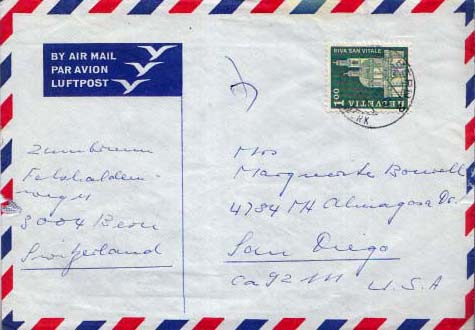 BY AIR MAIL
PAR AVION
LUFTPOST
RIVA SAN VITALE
1.00
HELVETIA
Zumbrunn
3004 Bern
Switzerland
Mrs
Marguerite
4734 Mt Almagosa Dr.
San Diego
Ca 92111
U.S.A